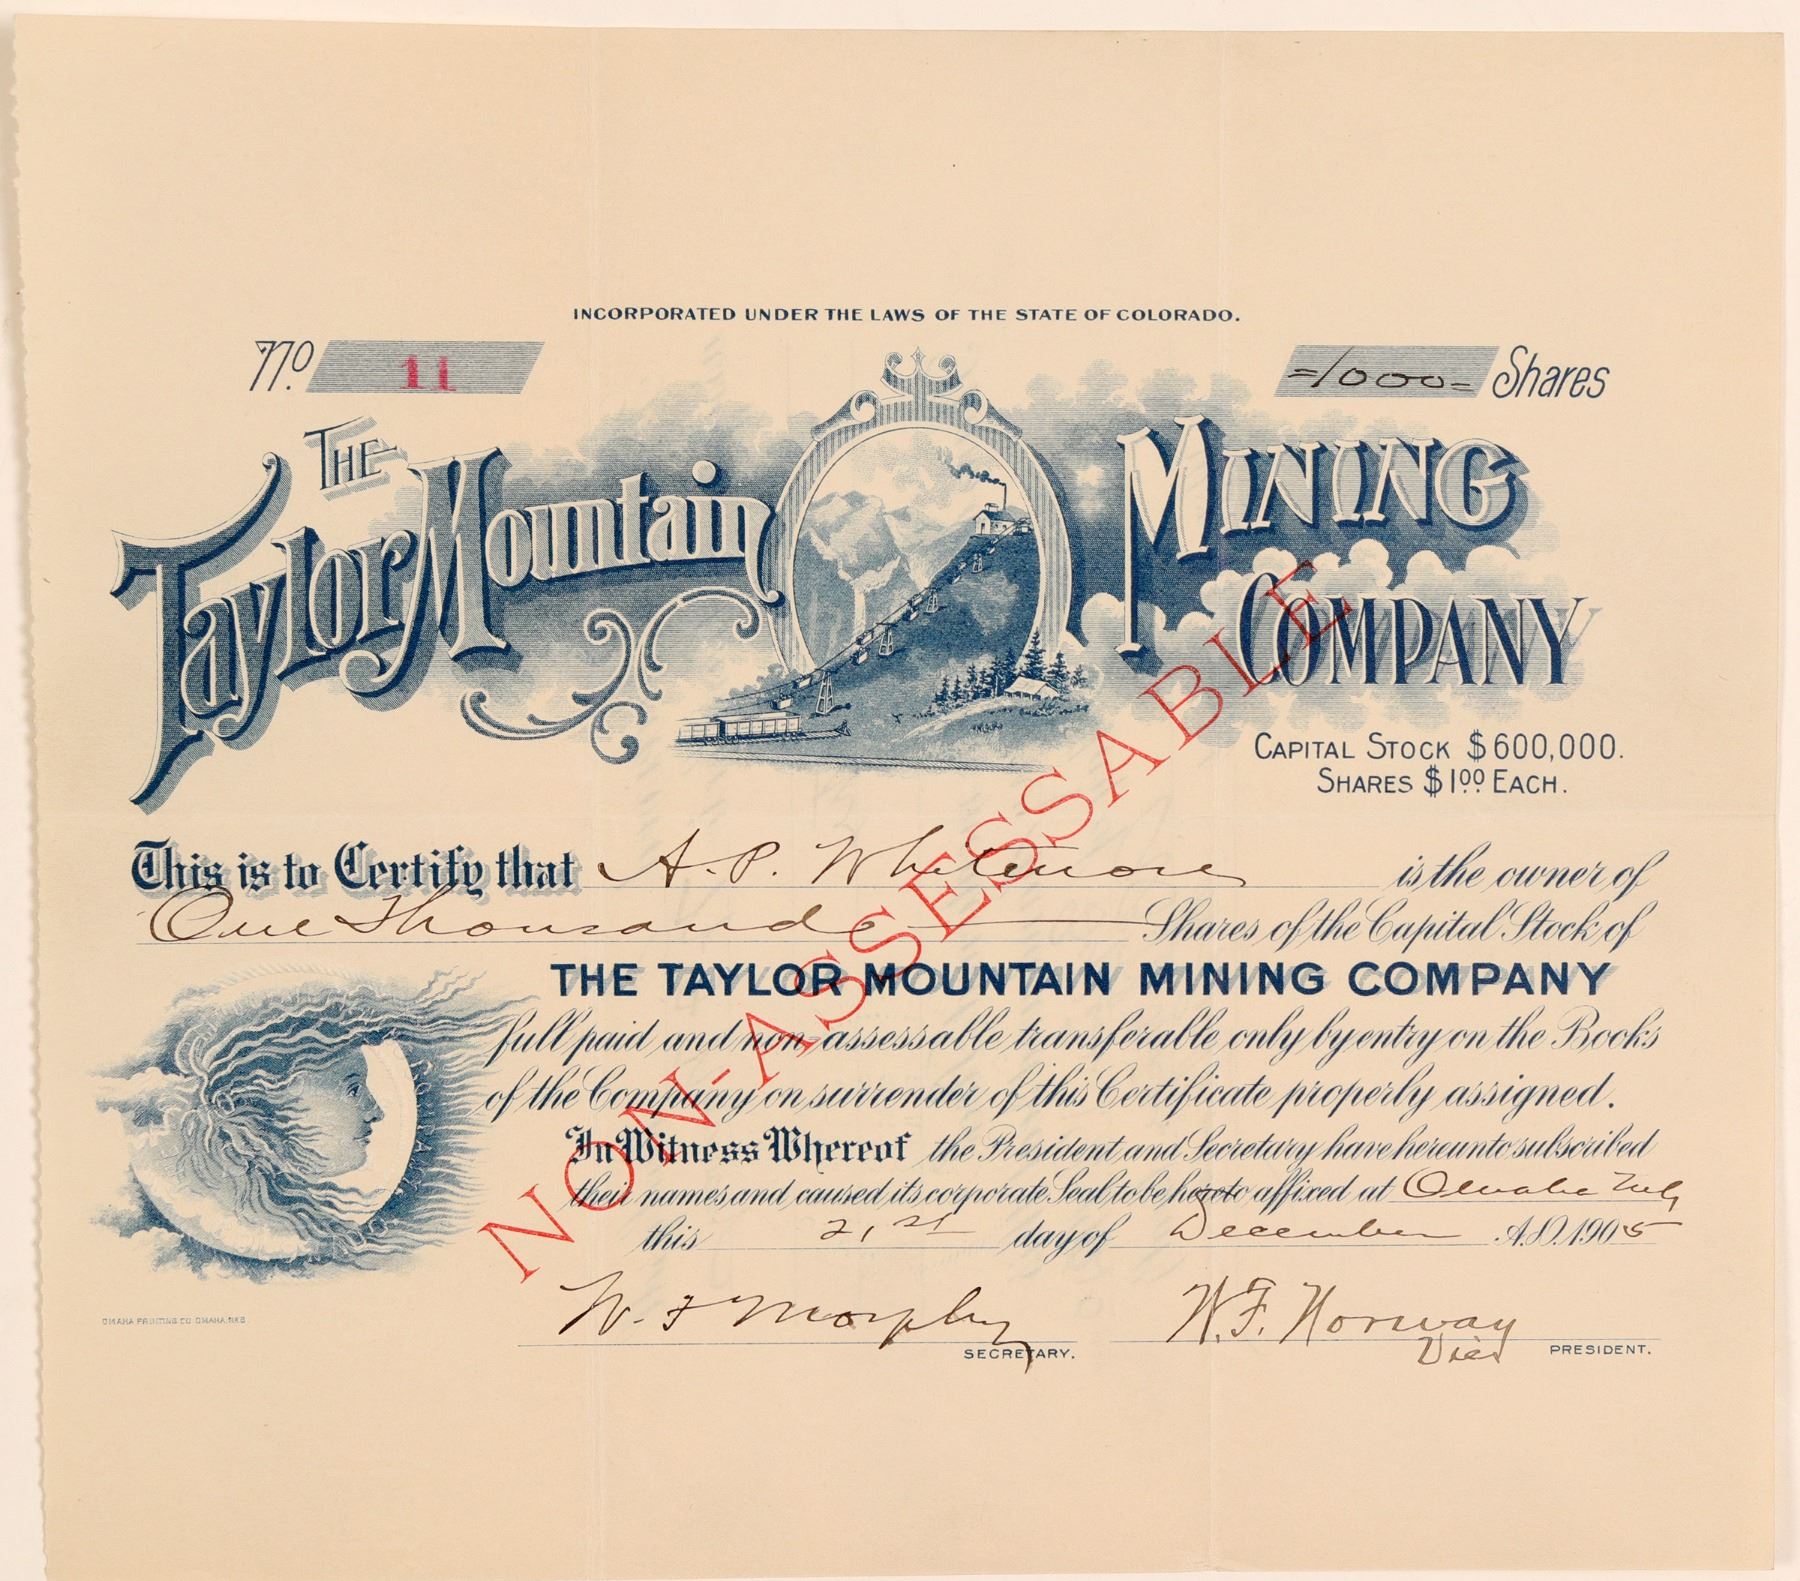 INCORPORATED UNDER THE LAWS OF THE STATE OF COLORADO.
No. 11
=1000= Shares
THE
Taylor Mountain
MINING
COMPANY
CAPITAL STOCK $600,000.
SHARES $1.00 EACH.
This is to Certify that A. P. Whitmore is the owner of
One Thousand Shares of the Capital Stock of
THE TAYLOR MOUNTAIN MINING COMPANY
full paid and non-assessable transferable only by entry on the Books
of the Company on surrender of this Certificate properly assigned.
In Witness Whereof the President and Secretary have hereunto subscribed
their names and caused its corporate Seal to be hereto affixed at Omaha Neb
this 21st day of December A.D. 1905
NON-ASSESSABLE
W. F. Morphy
W. F. Norway
SECRETARY.
Vice PRESIDENT.
OMAHA PRINTING CO. OMAHA, NEB.